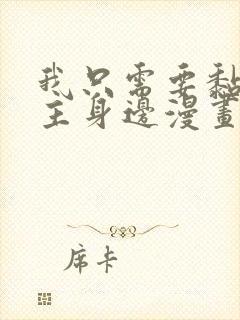 我只需要黏
主身邊漫畫
席卡